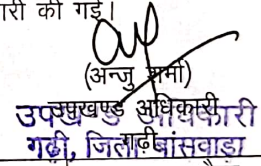 ारी की गई।
(अन्जु शर्मा)
उपखण्ड अधिकारी
गढ़ी
उपखण्ड अधिकारी
गढ़ी, जिला बांसवाडा